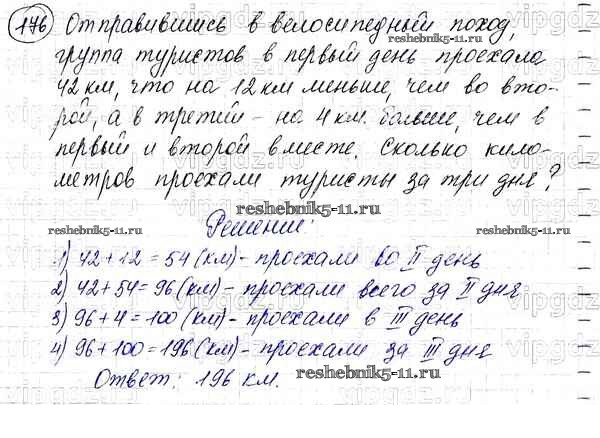 176 Отправившись в велосипедный поход,
группа туристов в первый день проехала
42 км, что на 12 км меньше, чем во вто-
рой, а в третий - на 4 км больше, чем в
первый и второй вместе. Сколько кило-
метров проехали туристы за три дня?
Решение:
1) 42 + 12 = 54 (км) - проехали во II день
2) 42 + 54 = 96 (км) - проехали всего за II дня
3) 96 + 4 = 100 (км) - проехали в III день
4) 96 + 100 = 196 (км) - проехали за III дня
Ответ: 196 км.
reshebnik5-11.ru
reshebnik5-11.ru
reshebnik5-11.ru
reshebnik5-11.ru
reshebnik5-11.ru